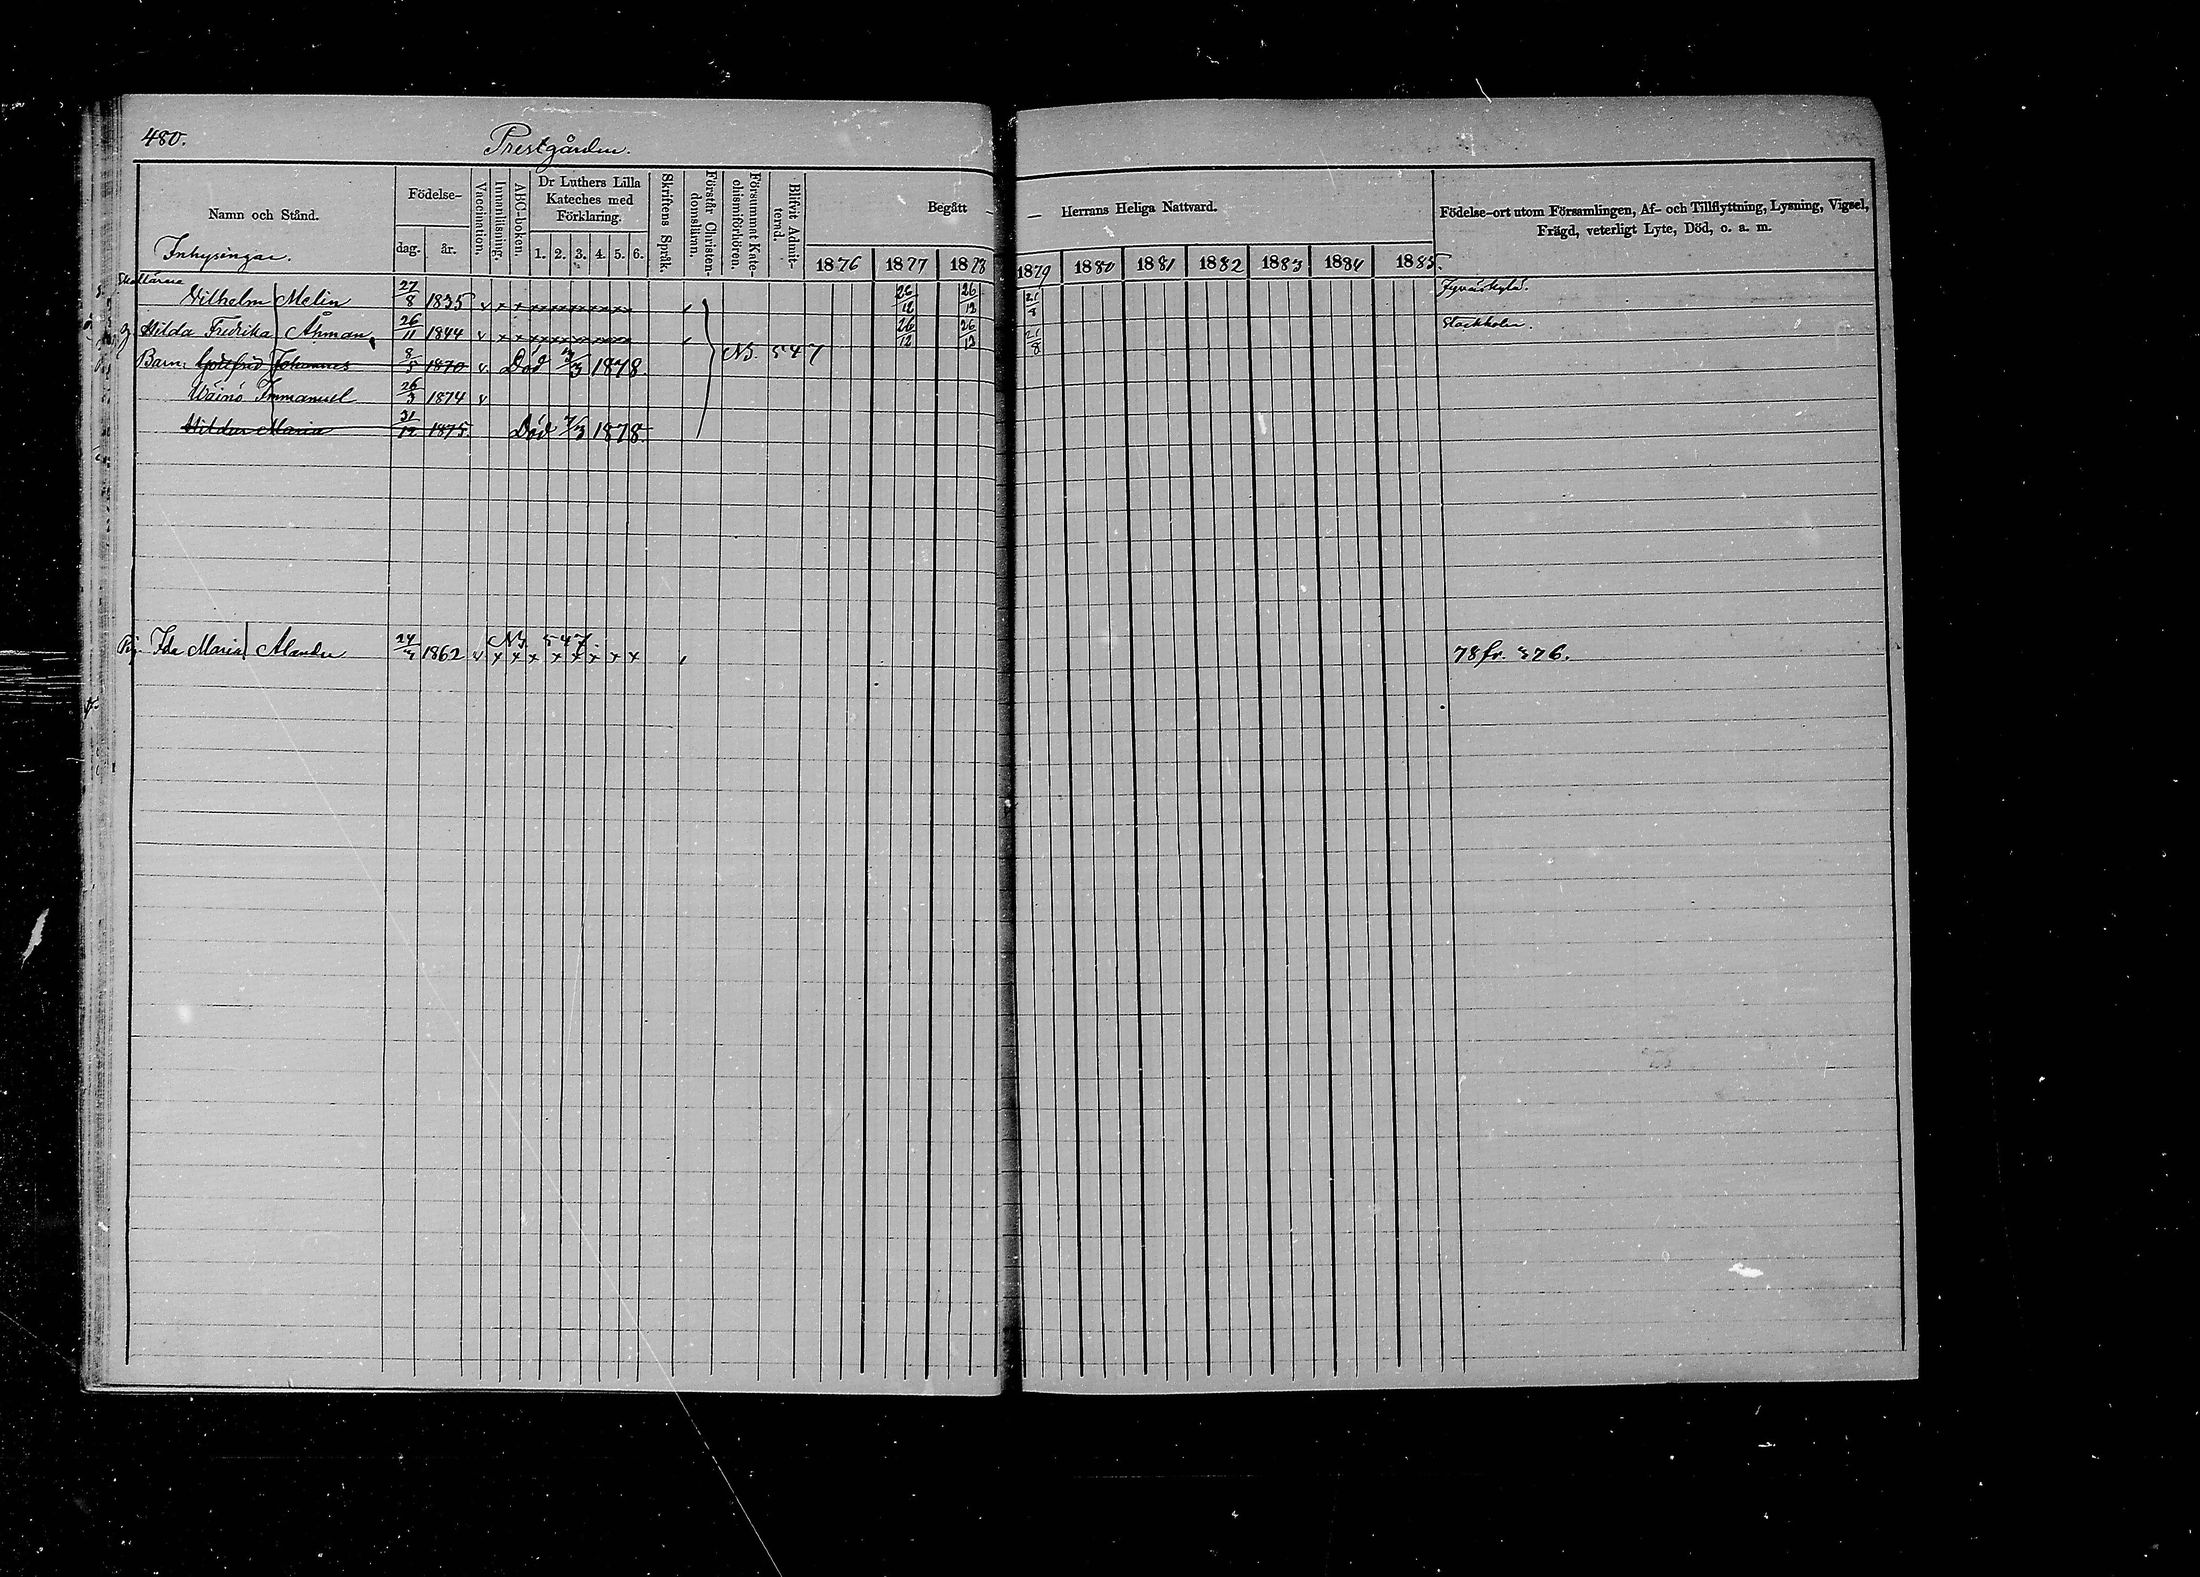 480.
Prestgården.
Namn och Stånd.
Inhysingar.
Födelse-
dag. år.
Vaccination.
Innanläsning.
ABC-boken.
Dr Luthers Lilla Kateches med Förklaring.
1. 2. 3. 4. 5. 6.
Skriftens Språk.
Förstår Christendomsläran.
Försummat Katechismiförhören.
Blifvit Admitterad.
Begått — — Herrans Heliga Nattvard.
1876 1877 1878 1879 1880 1881 1882 1883 1884 1885.
Födelse-ort utom Församlingen, Af- och Tillflyttning, Lysning, Vigsel,
Frägd, veterligt Lyte, Död, o. a. m.
Vilhelm Melin 27/8 1835 v x x x x x x x x 26/12 26/12 21/8 Jyväskylä.
Hilda Fredrika Åhman 26/11 1844 v x x x x x x x x 26/12 26/12 21/8 Stockholm.
N3. 547
Barn: Gottfrid Johannes 8/5 1870 v. Död /3 1878.
Wäinö Immanuel 26/3 1874 v
Hildur Maria 31/12 1875. Död 7/3 1878.
N3. 547.
Pig. Ida Maria Alander 24/3 1862 v x x x x x x x x 78 fr. 376.